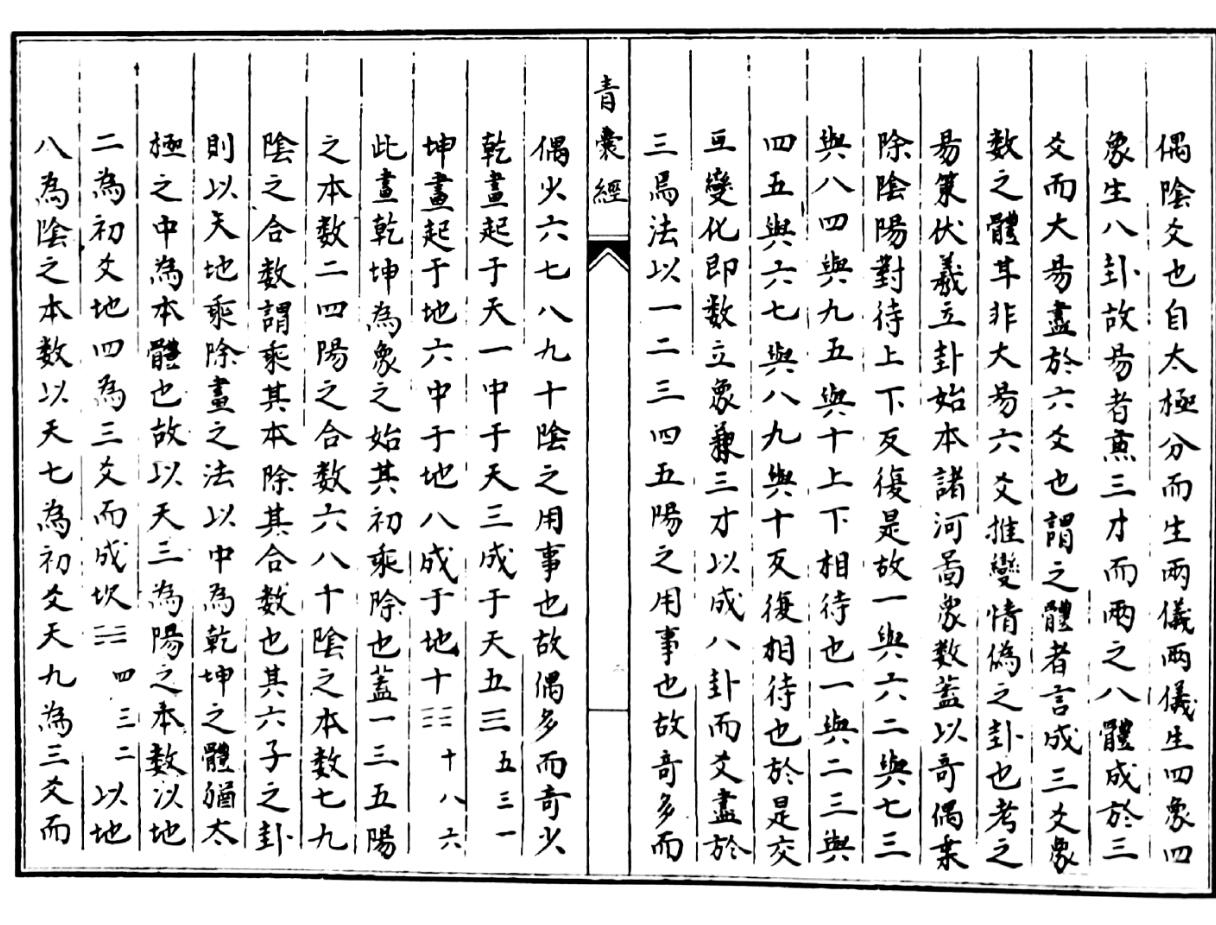 偶陰爻也自太極分而生兩儀兩儀生四象四
象生八卦故易者兼三才而兩之八體成於三
爻而大易盡於六爻也謂之體者言成三爻象
数之體耳非大易六爻推變情偽之卦也考之
易策伏羲立卦始本諸河啚象数蓋以奇偶乗
除陰陽對待上下反復是故一與六二與七三
與八四與九五與十上下相待也一與二三與
四五與六七與八九與十反復相待也於是交
亙變化即数立象兼三才以成八卦而爻盡於
三焉法以一二三四五陽之用事也故奇多而
青囊經
偶少六七八九十陰之用事也故偶多而奇少
乾畫起于天一中于天三成于天五☰五三一
坤畫起于地六中于地八成于地十☷十八六
此畫乾坤為象之始其初乘除也蓋一三五陽
之本数二四陽之合数六八十陰之本数七九
陰之合数謂乘其本除其合数也其六子之卦
則以天地乘除畫之法以中為乾坤之體猶太
極之中為本體也故以天三為陽之本數以地
二為初爻地四為三爻而成坎☵四三二以地
八為陰之本数以天七為初爻天九為三爻而